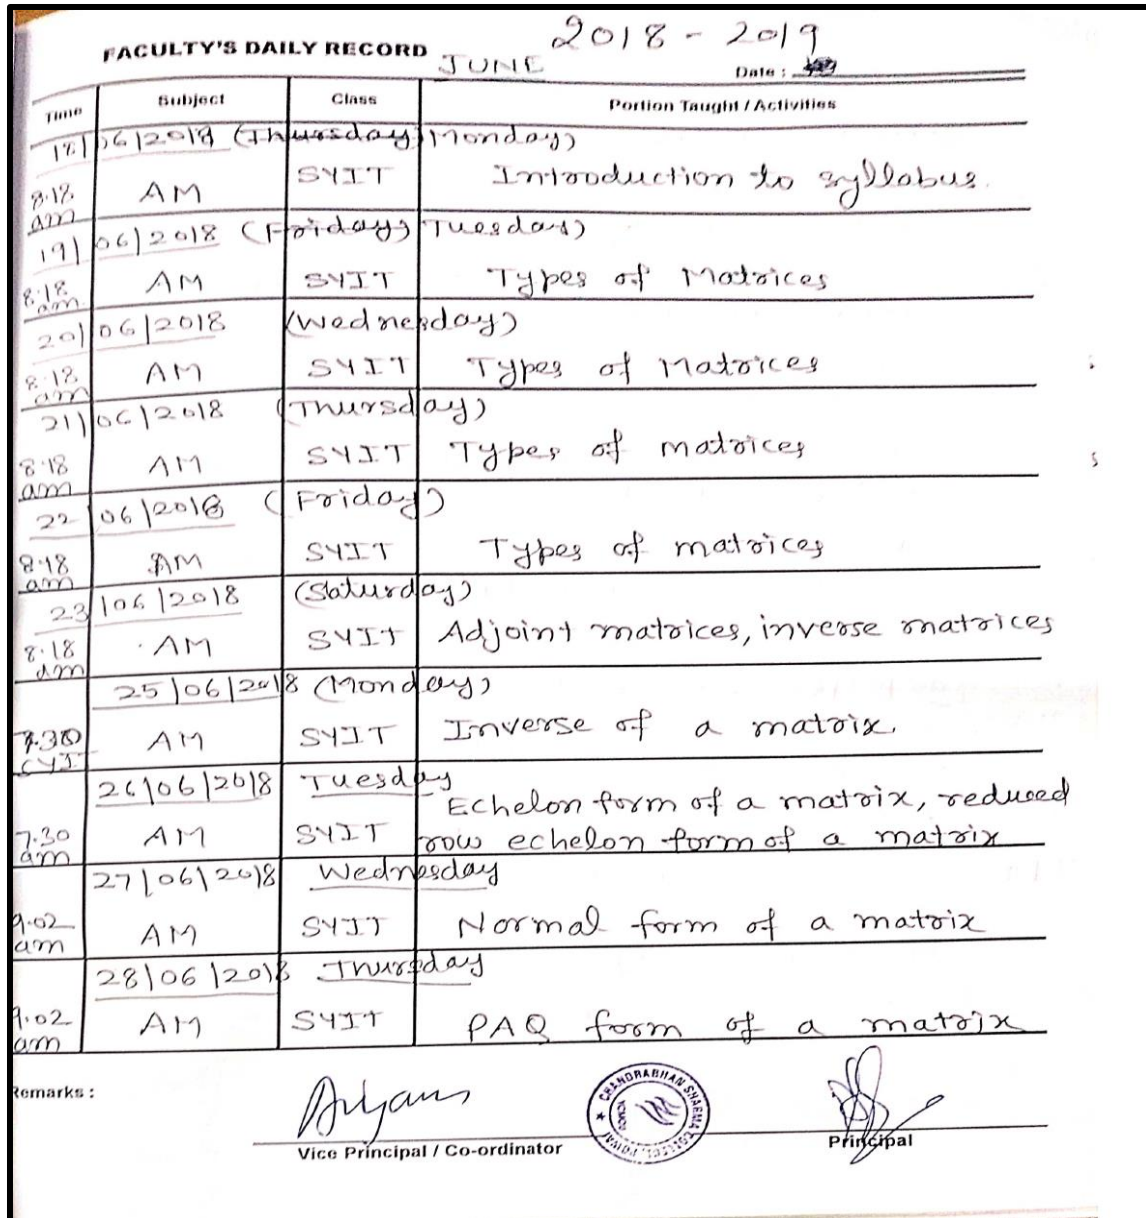 2018 - 2019
FACULTY'S DAILY RECORD JUNE Date :
Time Subject Class Portion Taught / Activities
18/06/2018 (Thursday, Monday)
8.18 am AM SYIT Introduction to syllabus.
19/06/2018 (Friday, Tuesday)
8.18 am AM SYIT Types of Matrices
20/06/2018 (Wednesday)
8.18 am AM SYIT Types of Matrices
21/06/2018 (Thursday)
8.18 am AM SYIT Types of matrices
22/06/2018 (Friday)
8.18 am AM SYIT Types of matrices
23/06/2018 (Saturday)
8.18 am AM SYIT Adjoint matrices, inverse matrices
25/06/2018 (Monday)
7.30 AM SYIT Inverse of a matrix.
26/06/2018 Tuesday
Echelon form of a matrix, reduced
7.30 am AM SYIT row echelon form of a matrix
27/06/2018 Wednesday
9.02 am AM SYIT Normal form of a matrix
28/06/2018 Thursday
9.02 am AM SYIT PAQ form of a matrix
Remarks :
CHANDRABHAN SHARMA COLLEGE, POWAI
Vice Principal / Co-ordinator Principal